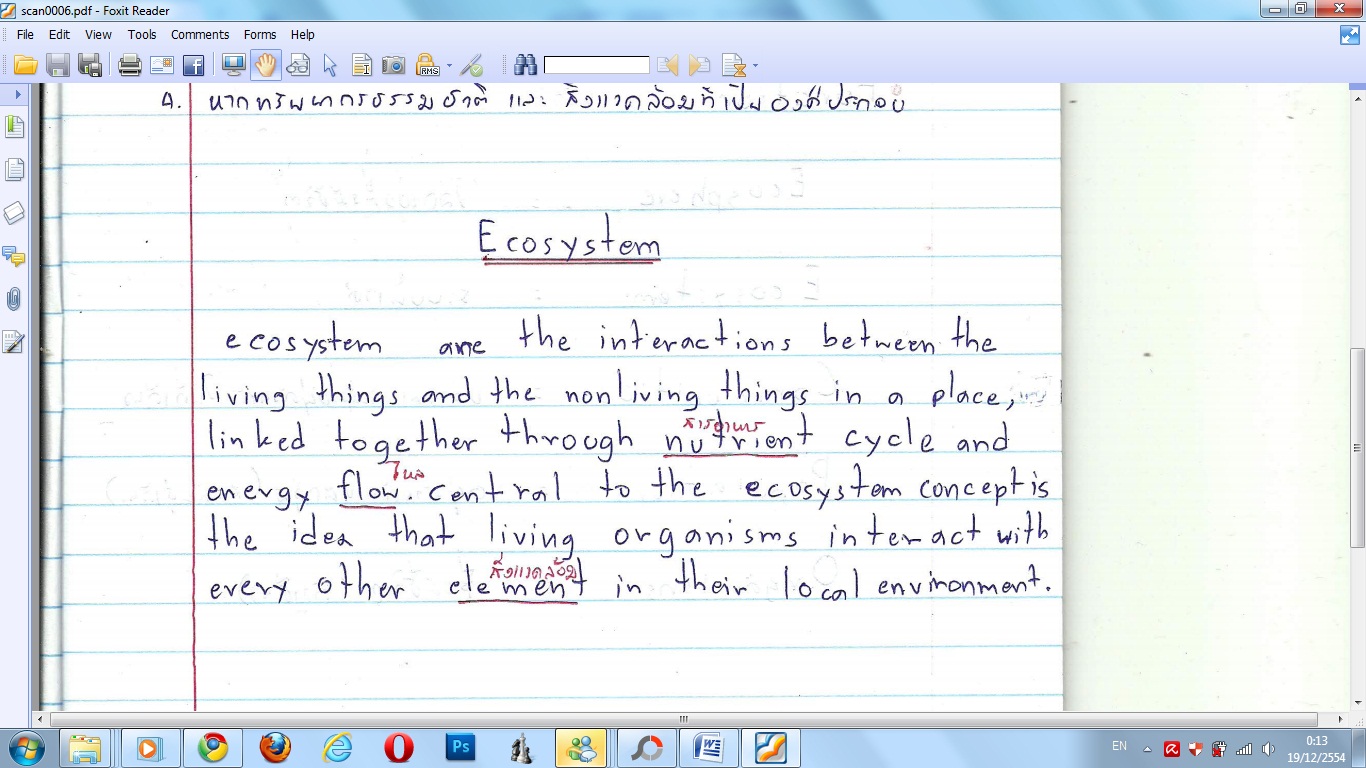 scan0006.pdf - Foxit Reader
File Edit View Tools Comments Forms Help
RMS
4. หากทรัพยากรธรรมชาติ และ สิ่งแวดล้อมที่เป็นองค์ประกอบ
Ecosystem
ecosystem are the interactions between the
living things and the nonliving things in a place,
สารอาหาร
linked together through nutrient cycle and
ไหล
energy flow. central to the ecosystem concept is
the idea that living organisms interact with
สิ่งแวดล้อม
every other element in their local environment.
Ps
W
EN
0:13
19/12/2554